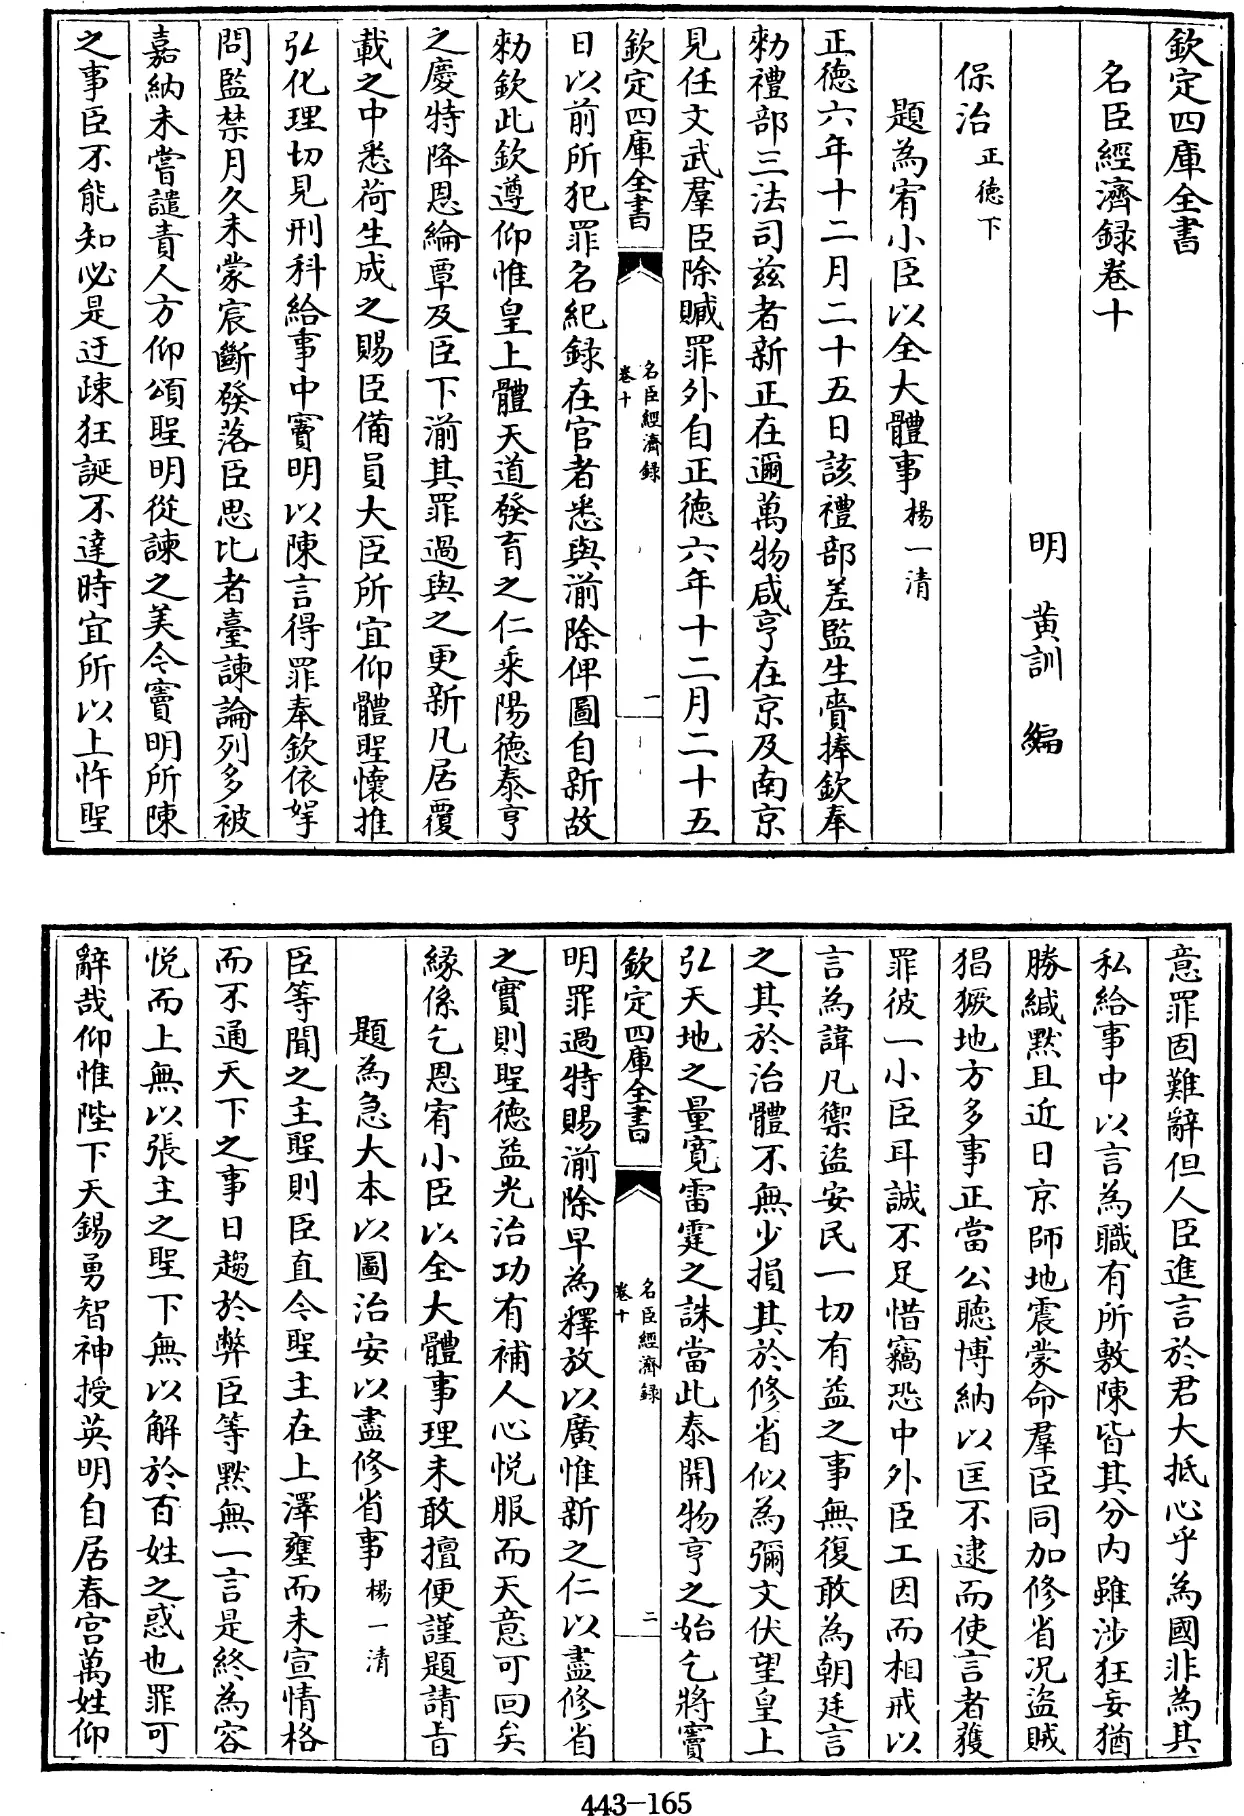 欽定四庫全書
名臣經濟録卷十
明 黄訓 編
保治正徳下
題為宥小臣以全大體事楊一清
正徳六年十二月二十五日該禮部差監生賫捧欽奉
勑禮部三法司兹者新正在邇萬物咸亨在京及南京
見任文武羣臣除贓罪外自正徳六年十二月二十五
欽定四庫全書
名臣經濟録
卷十
一
日以前所犯罪名紀録在官者悉與湔除俾圖自新故
勑欽此欽遵仰惟皇上體天道發育之仁乘陽徳泰亨
之慶特降恩綸覃及臣下湔其罪過與之更新凡居覆
載之中悉荷生成之賜臣備員大臣所宜仰體聖懷推
弘化理切見刑科給事中竇明以陳言得罪奉欽依拏
問監禁月久未蒙宸斷發落臣思比者臺諫論列多被
嘉納未嘗譴責人方仰頌聖明從諫之美今竇明所陳
之事臣不能知必是迂踈狂誕不達時宜所以上忤聖
意罪固難辭但人臣進言於君大抵心乎為國非為其
私給事中以言為職有所敷陳皆其分内雖涉狂妄猶
勝緘默且近日京師地震蒙命羣臣同加修省况盜賊
猖獗地方多事正當公聽博納以匡不逮而使言者獲
罪彼一小臣耳誠不足惜竊恐中外臣工因而相戒以
言為諱凡禦盜安民一切有益之事無復敢為朝廷言
之其於治體不無少損其於修省似為彌文伏望皇上
弘天地之量寛雷霆之誅當此泰開物亨之始乞將竇
欽定四庫全書
名臣經濟録
卷十
二
明罪過特賜湔除早為釋放以廣惟新之仁以盡修省
之實則聖徳益光治功有補人心悦服而天意可回矣
縁係乞恩宥小臣以全大體事理未敢擅便謹題請旨
題為急大本以圖治安以盡修省事楊一清
臣等聞之主聖則臣直今聖主在上澤壅而未宣情格
而不通天下之事日趨於弊臣等默無一言是終為容
悦而上無以張主之聖下無以解於百姓之惑也罪可
辭哉仰惟陛下天錫勇智神授英明自居春宫萬姓仰
443-165